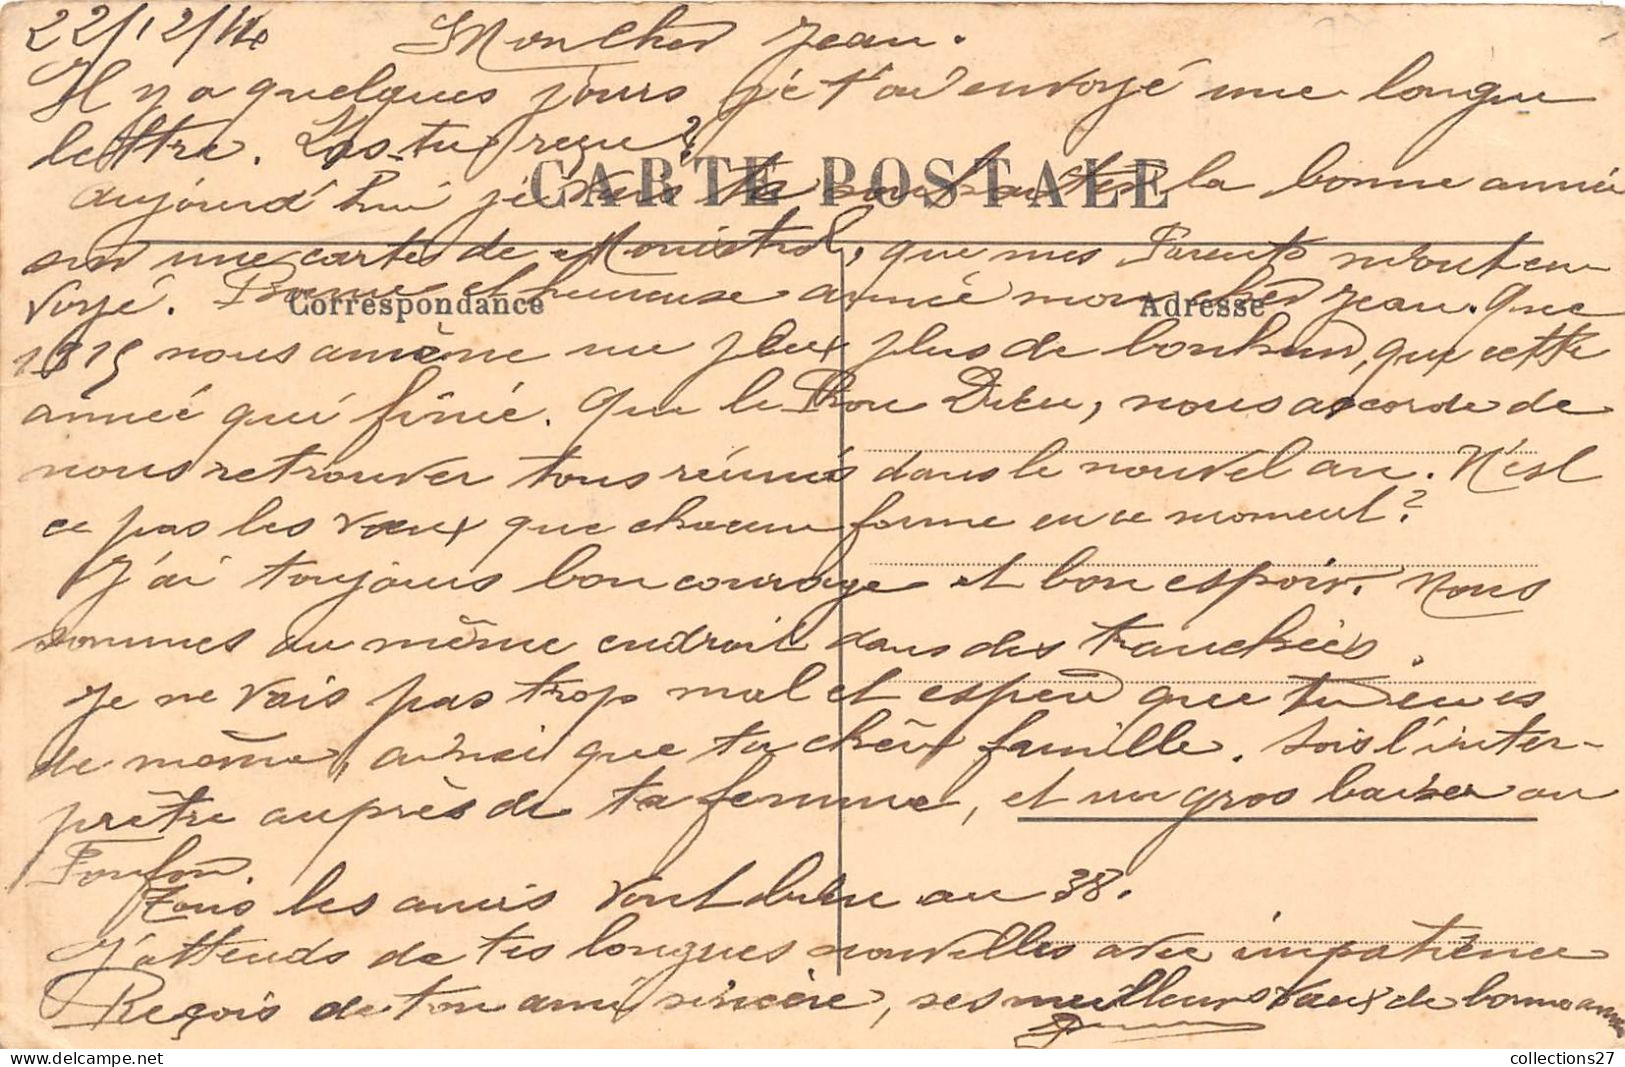 22/12/14 Mon Cher Jean.
Il y a quelques jours je t'ai envoyé une longue
lettre. L'as-tu reçue?
CARTE POSTALE
aujourd'hui je viens te souhaiter la bonne année
sur une carte de Monistrol, que mes Parents m'ont en-
voyé. Bonne et heureuse année mon cher Jean. Que
Correspondance
Adresse
1915 nous amène un peu plus de bonheur, que cette
année qui finie. Que le Bon Dieu, nous accorde de
nous retrouver tous réunis dans le nouvel an. N'est
ce pas les vœux que chacun forme en ce moment?
J'ai toujours bon courage et bon espoir. Nous
sommes au même endroit dans des tranchées.
Je ne vais pas trop mal et espère que tu en es
de même, ainsi que ta chère famille. Sois l'inter-
prêtre auprès de ta femme, et un gros baiser au
Fonfon.
Tous les amis vont bien au 38.
J'attends de tes longues nouvelles avec impatience
Reçois de ton ami sincère, ses meilleurs vœux de bonne année
collections27